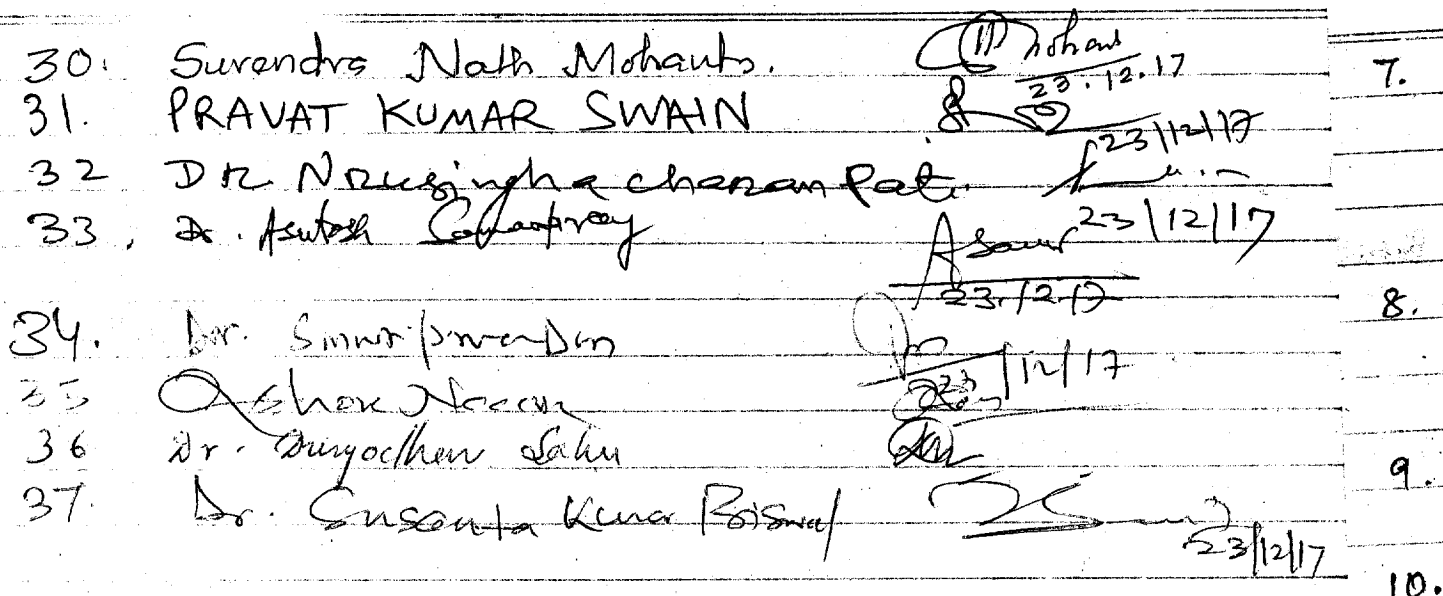 30. Surendra Nath Mohanty. Mohan 23.12.17
31. PRAVAT KUMAR SWAIN 23/12/17
32 DR Nrusingha charan Pati. 23/12/17
33, Dr. Asutosh Asam 23.12.17
34. Dr. 23/12/17
35 Ashok
36 Dr. Duryodhan Sahu
37. Dr. Susanta Kumar Biswal 23/12/17
7.
8.
9.
10.